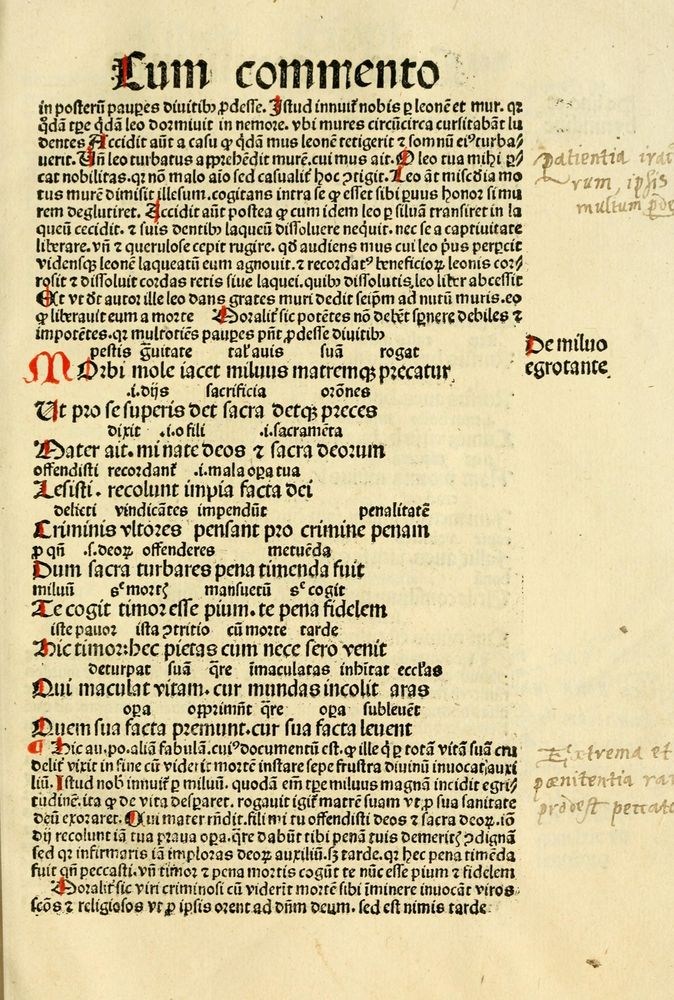 Cum commento
in posterū paupes diuitibꝫ ꝓdesse. Istud innuit᷑ nobis ꝑ leonē et mur. qꝛ
q̇dā tꝑe q̇dā leo dormiuit in nemore. vbi mures circūcirca cursitabāt lu
dentes Accidit aūt a casu ꝙ q̇dā mus leonē tetigerit ⁊ somnū eiꝰ turba⸗
uerit. Vn̄ leo turbatus apprehēdit murē. cui mus ait. O leo tua mihi ꝑ⸗
cat nobilitas. qꝛ nō malo aīo sed casualit᷑ hoc ꝯtigit. Leo āt mis̄cdīa mo
tus murē dimisit illesum. cogitans intra se ꝙ esset sibi paruus honor si mu
rem deglutiret. Accidit aūt postea ꝙ cum idem leo ꝑ siluā transiret in la
queū cecidit. ⁊ suis dentibꝫ laqueū dissoluere nequit. nec se a captiuitate
liberare. vn̄ ⁊ querulose cepit rugire. qd̄ audiens mus cui leo p̓us peꝑcit
vidensqꝫ leonē laqueatū eum agnouit. ⁊ recordatꝰ beneficioꝝ leonis cor⸗
rosit ⁊ dissoluit cordas retis siue laquei. quibꝫ dissolutis, leo liber abcessit
Et vt dt̄ autor ille leo dans grates muri dedit seip̄m ad nutū muris. eo
ꝙ liberauit eum a morte Moralit᷑ sic potētes nō debēt spernere debiles ⁊
impotētes. qꝛ multotiēs paupes pn̄t ꝓdesse diuitibꝫ
pestis gͣuitate tal᷑ auis suā rogat
De miluo
MOrbi mole iacet miluus matremqꝫ precatur
egrotante
.i. dijs sacrificia orōnes
Ut pro se superis det sacra detqꝫ preces
dixit .i. o fili .i. sacramēta
Mater ait. mi nate deos ⁊ sacra deorum
offendisti recordant᷑ .i. mala oꝑa tua
Lesisti. recolunt impia facta dei
delicti vindicātes impendūt penalitatē
Criminis vltores pensant pro crimine penam
ꝓ qn̄ .s. deoꝝ offenderes metuēda
Dum sacra turbares pena timenda fuit
miluū sꝫ mortꝭ mansuetū sꝫ cogit
Te cogit timor esse pium. te pena fidelem
iste pauor ista ꝯtritio cū morte tarde
Hic timor: hec pietas cum nece sero venit
deturpat suā q̄re īmaculatas inhītat eccl̄as
Qui maculat vitam. cur mundas incolit aras
oꝑa opprimūt q̄re oꝑa subleuēt
Quem sua facta premunt. cur sua facta leuent
¶ Hic au. po. aliā fabulā. cuiꝰ documentū est. ꝙ ille q̇ ꝑ totā vitā suā cru
delit᷑ vixit in fine cū viderit mortē instare sepe frustra diuinū inuocat auxi
liū. Istud nob̄ innuit᷑ ꝑ miluū. quodā em̄ tꝑe miluus magnā incidit egri⸗
tudinē. ita ꝙ de vita desꝑaret. rogauit igit᷑ matrē suam vt ꝓ sua sanitate
deū exoraret. Cui mater rn̄dit. fili mi tu offendisti deos ⁊ sacra deoꝝ. iō
dij recolunt iā tua praua oꝑa. q̄re dabūt tibi penā tuis demeritꝭ ꝯdignā
sed qꝛ infirmaris iā imploras deoꝝ auxiliū. sꝫ tarde. qꝛ hec pena timēda
fuit qn̄ peccasti. vn̄ timor ⁊ pena mortis cogūt te nūc esse pium ⁊ fidelem
Moralit᷑ sic viri criminosi cū viderīt mortē sibi īminere inuocāt viros
scōs ⁊ religiosos vt ꝓ ip̄sis orent ad dn̄m deum. sed est nimis tarde
Patientia irat
rum, ipsis
multum ꝓde
Extrema et
pœnitentia ra
prodest peccato